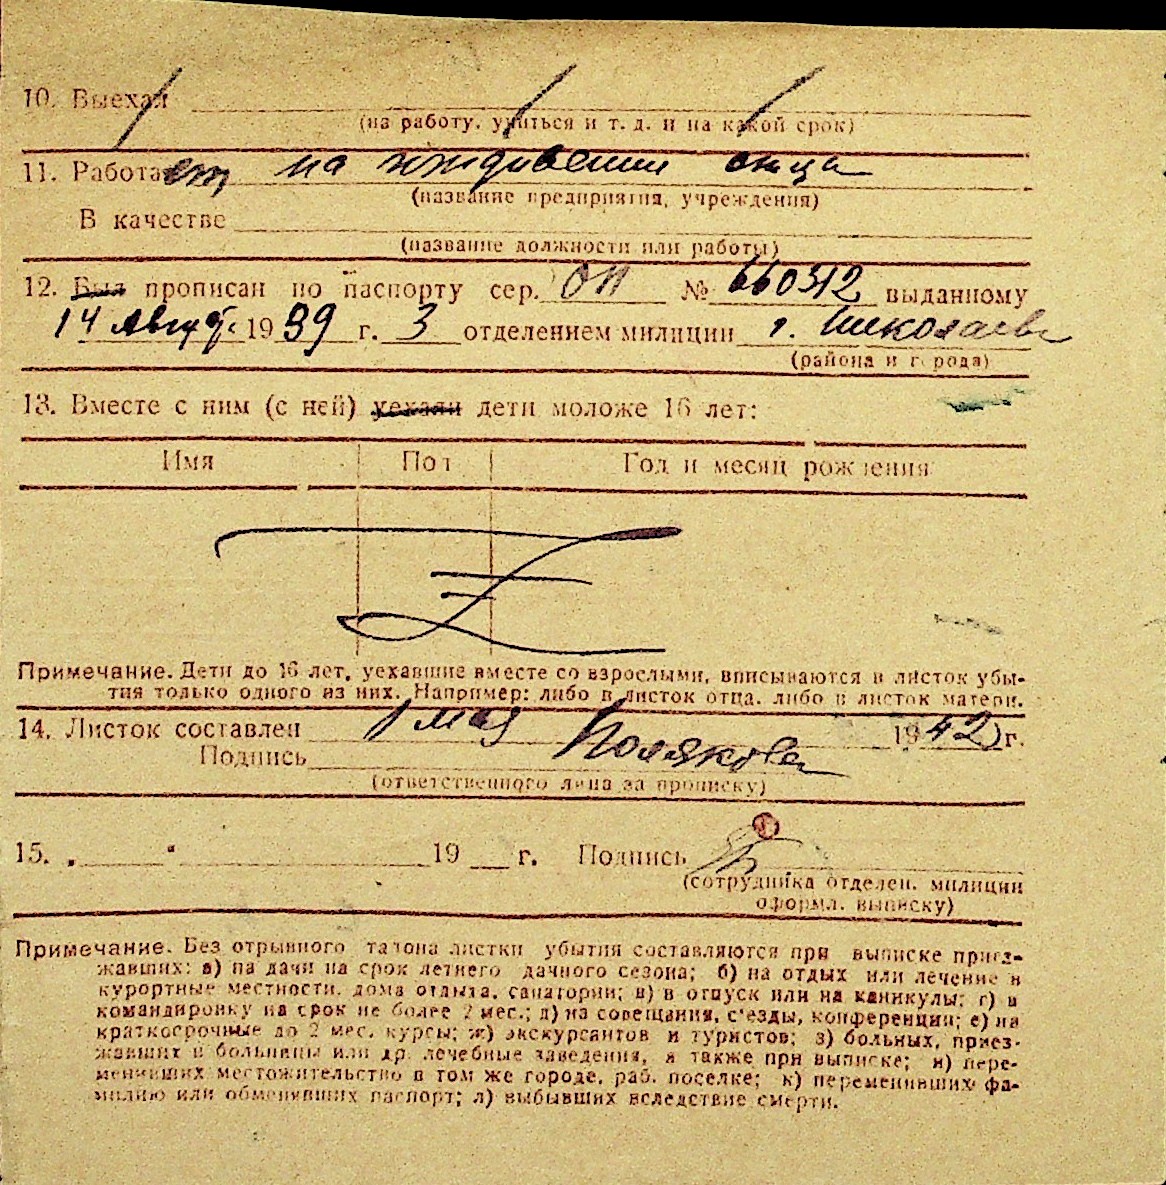 10. Выехал
(на работу, учиться и т. д. и на какой срок)
11. Работает на иждивении отца
(название предприятия, учреждения)
В качестве
(название должности или работы)
12. Был прописан по паспорту сер. ОП № 660312 выданному
14 Август. 1939 г. 3 отделением милиции г. Николаева
(района и города)
13. Вместе с ним (с ней) уехали дети моложе 16 лет:
Имя Пол Год и месяц рождения
Примечание. Дети до 16 лет, уехавшие вместе со взрослыми, вписываются в листок убы-
тия только одного из них. Например: либо в листок отца, либо в листок матери.
14. Листок составлен 1 мая 1942 г.
Подпись Полякова
(ответственного лица за прописку)
15. „ “ 19 г. Подпись
(сотрудника отделен. милиции
оформл. выписку)
Примечание. Без отрывного талона листки убытия составляются при выписке приез-
жавших: а) на дачи на срок летнего дачного сезона; б) на отдых или лечение в
курортные местности, дома отдыха, санатории; в) в отпуск или на каникулы; г) в
командировку на срок не более 2 мес.; д) на совещания, с'езды, конференции; е) на
краткосрочные до 2 мес. курсы; ж) экскурсантов и туристов; з) больных, приез-
жавших в больницы или др. лечебные заведения, а также при выписке; и) пере-
менивших местожительство в том же городе, раб. поселке; к) переменивших фа-
милию или обменивших паспорт; л) выбывших вследствие смерти.